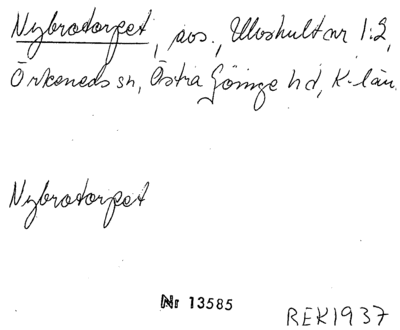 Nybrotorpet, pos., Uloshult nr 1:2,
Örkeneds sn, Östra Göinge hd, K-län.
Nybrotorpet
Nr 13585
REK1937